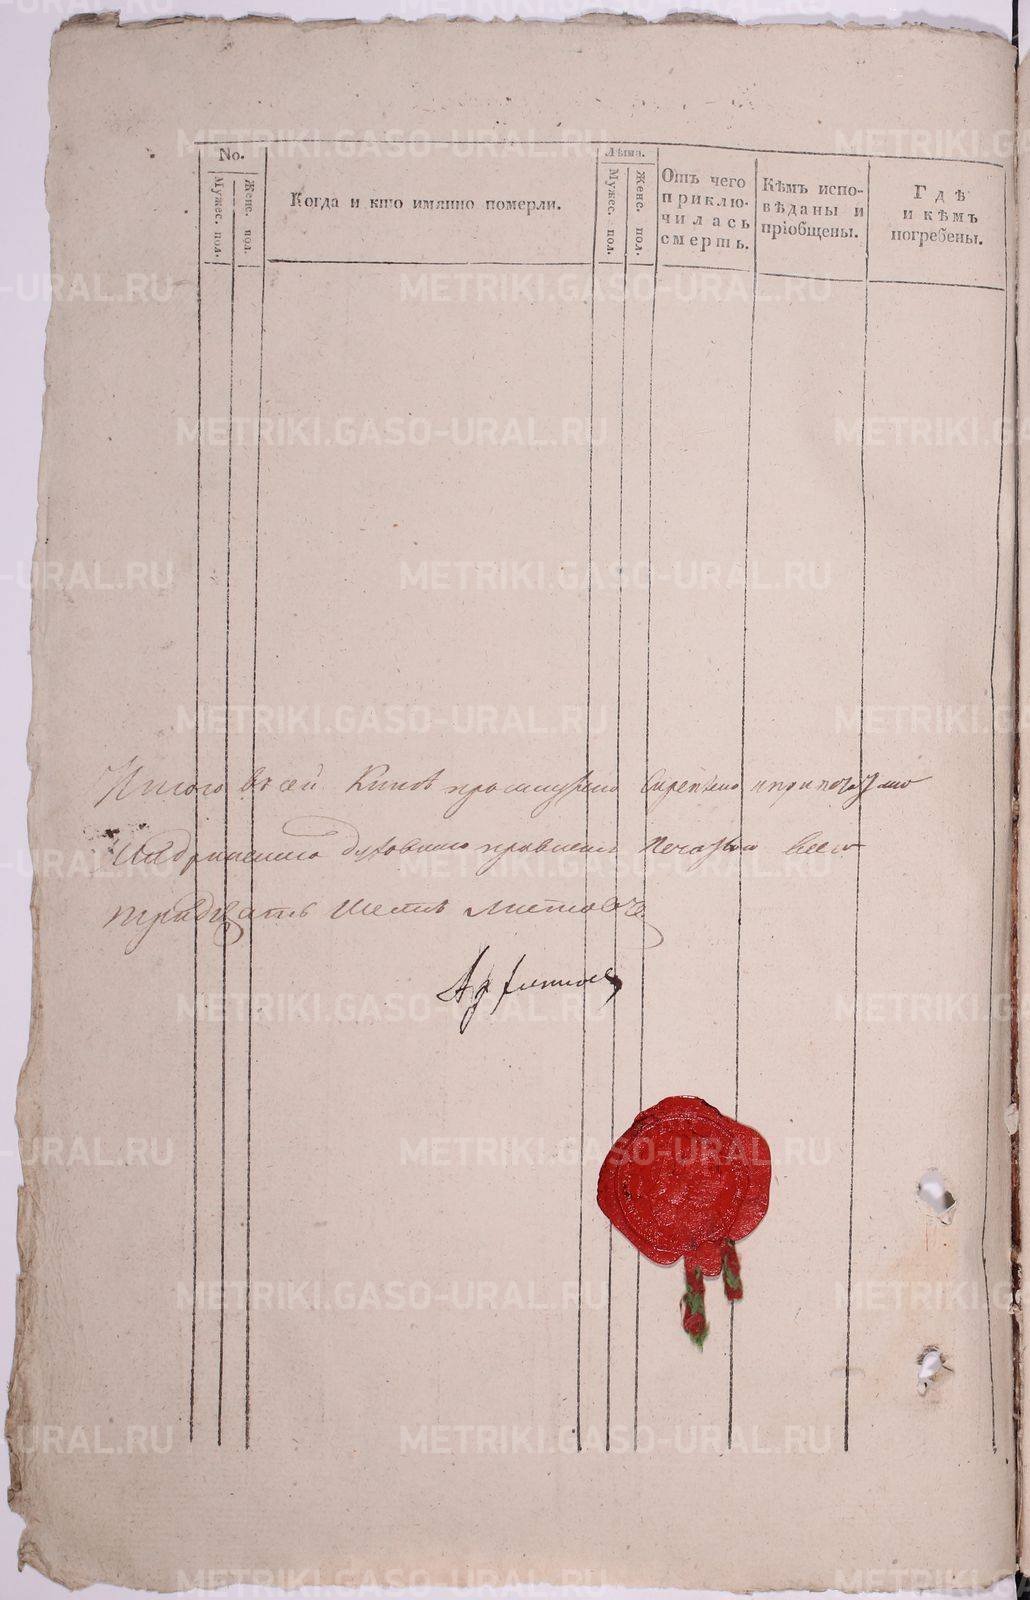 No.
Мужес. пол.
Женс. пол.
Когда и кто имянно померли.
Лѣта.
Мужес. пол.
Женс. пол.
Отъ чего
приклю-
чилась
смерть.
Кѣмъ испо-
вѣданы и
пріобщены.
Гдѣ
и кѣмъ
погребены.
Итого въ сей Книгѣ прошнурено скреплено и припечатано
духовнаго правленія печатью всего
тридцать шесть листовъ
METRIKI.GASO-URAL.RU